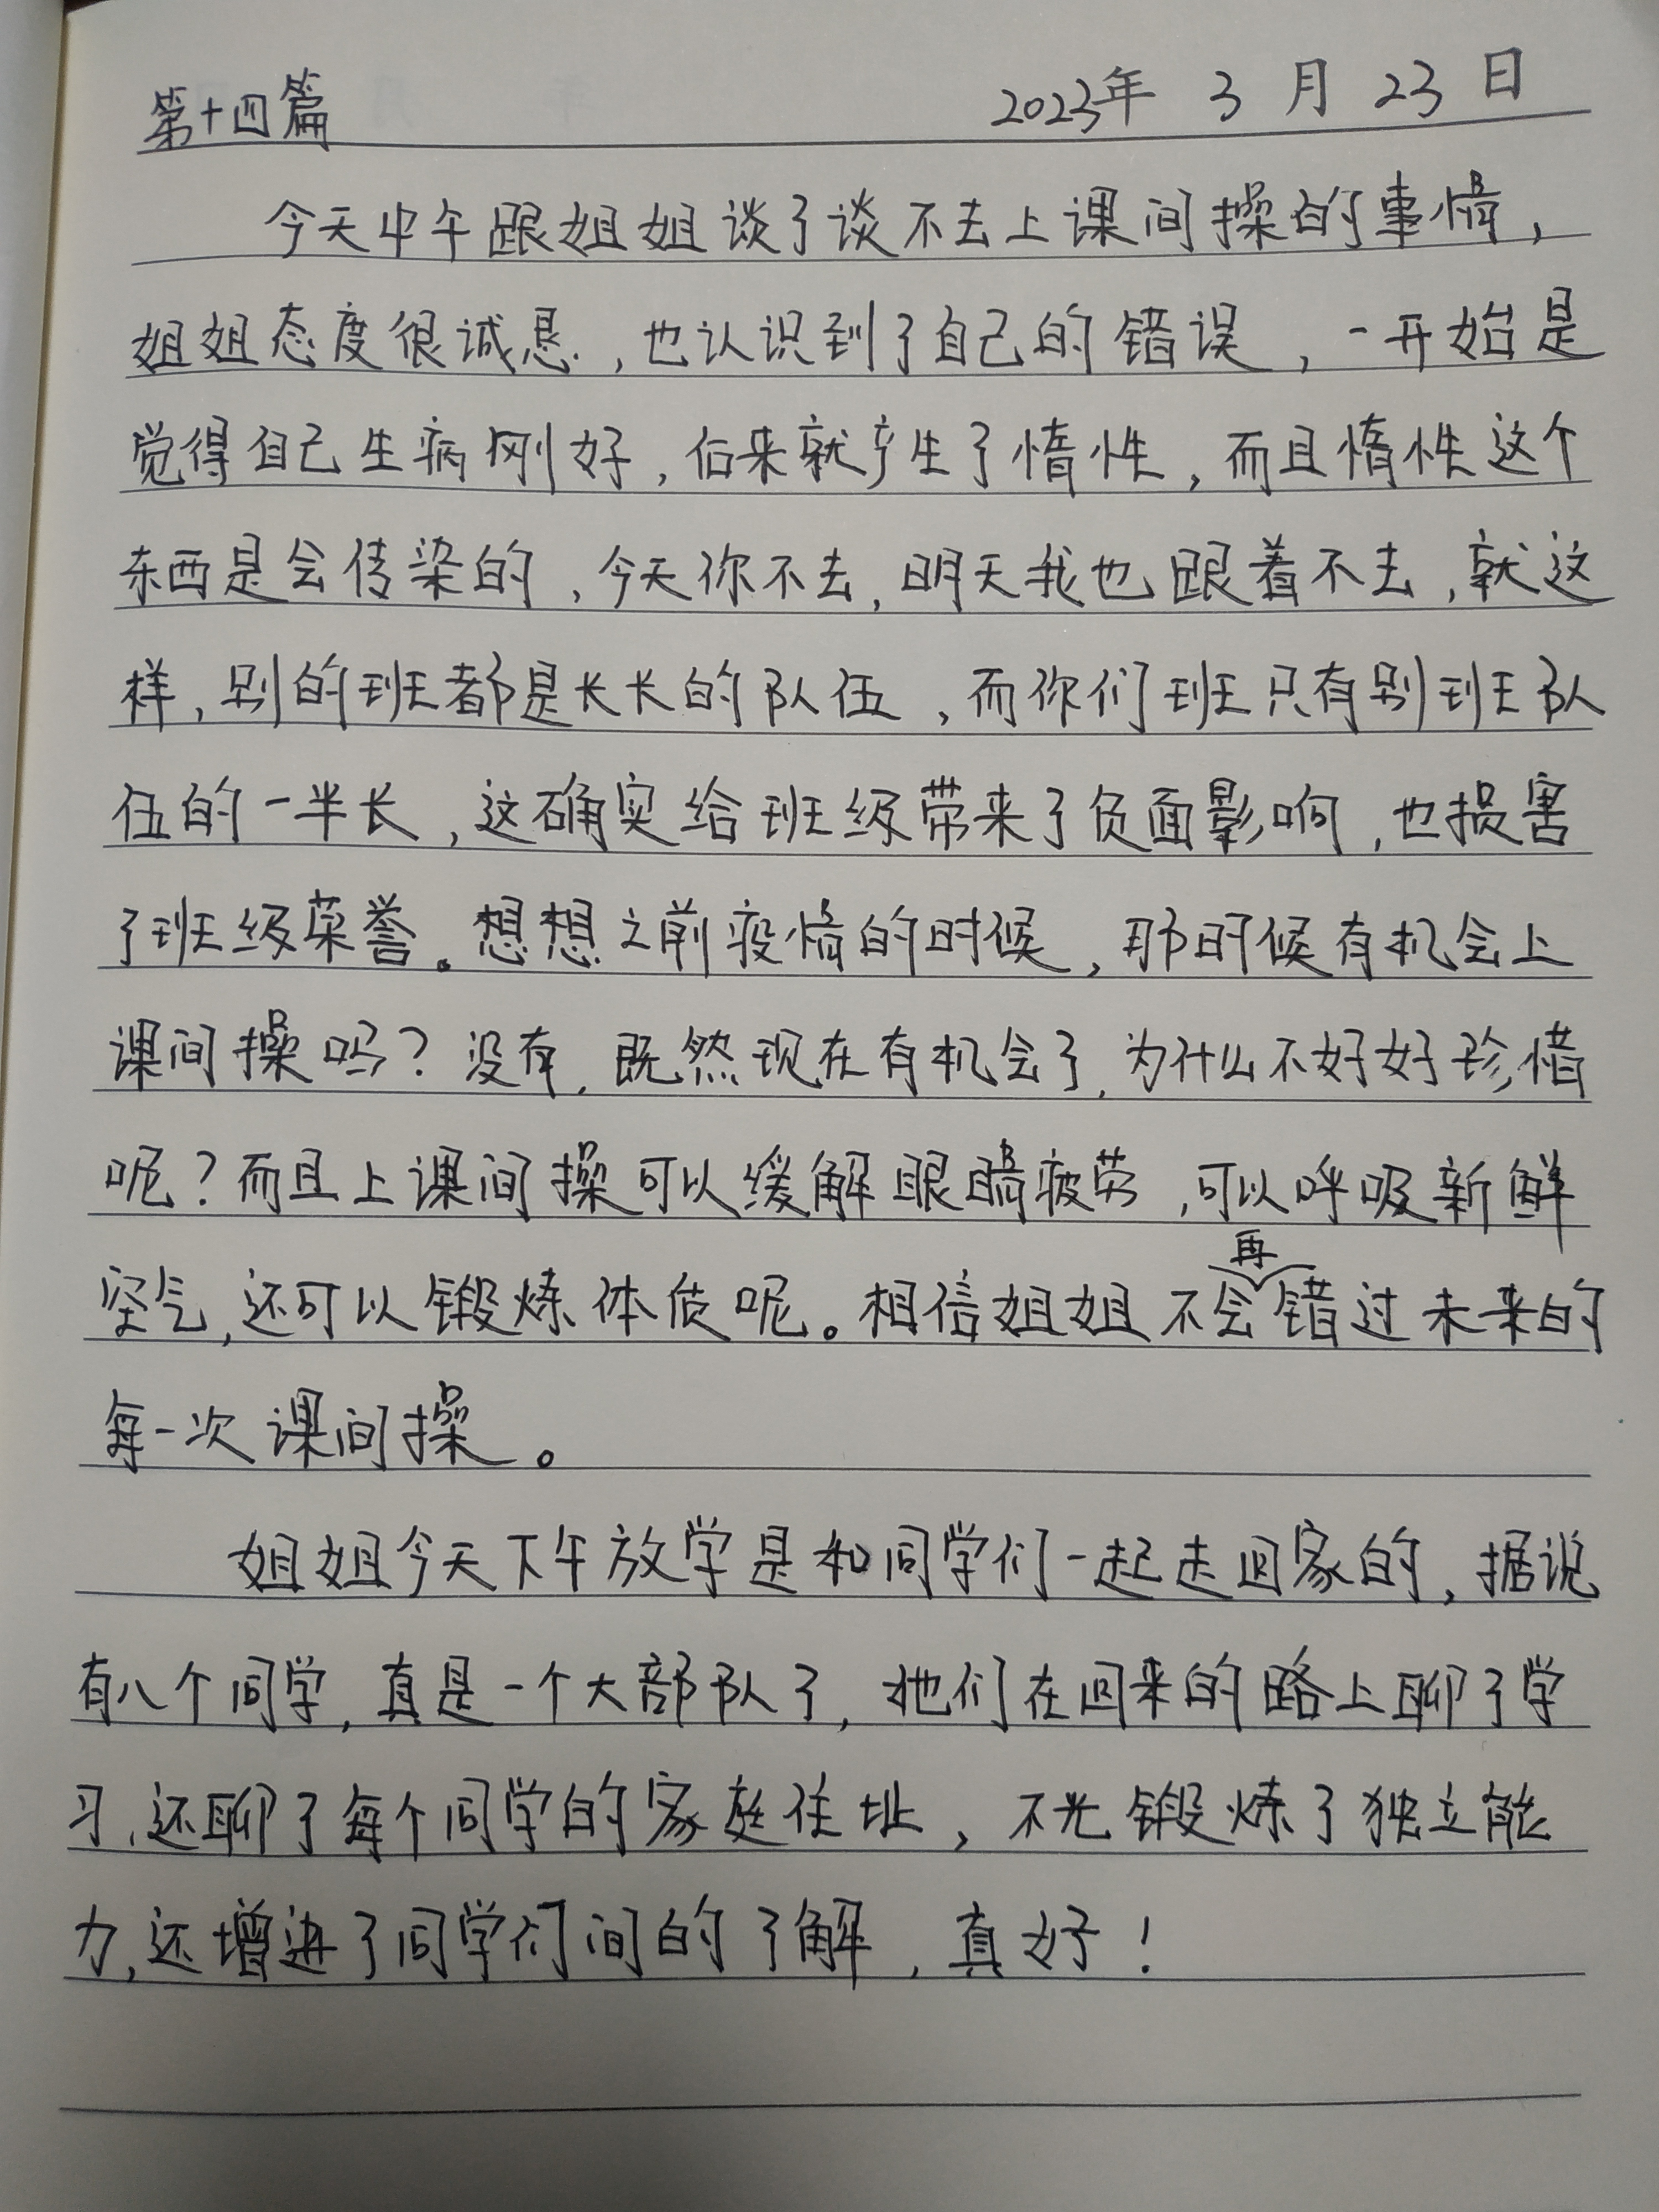 第十四篇 2023年 3 月 23 日
今天中午跟姐姐谈了谈不去上课间操的事情，
姐姐态度很诚恳，也认识到了自己的错误，一开始是
觉得自己生病刚好，后来就产生了惰性，而且惰性这个
东西是会传染的，今天你不去，明天我也跟着不去，就这
样，别的班都是长长的队伍，而你们班只有别班队
伍的一半长，这确实给班级带来了负面影响，也损害
了班级荣誉。想想之前疫情的时候，那时候有机会上
课间操吗？没有，既然现在有机会了，为什么不好好珍惜
呢？而且上课间操可以缓解眼睛疲劳，可以呼吸新鲜
空气，还可以锻炼体质呢。相信姐姐不会再错过未来的
每一次课间操。
姐姐今天下午放学是和同学们一起走回家的，据说
有八个同学，真是一个大部队了，他们在回来的路上聊了学
习，还聊了每个同学的家庭住址，不光锻炼了独立能
力，还增进了同学们间的了解，真好！